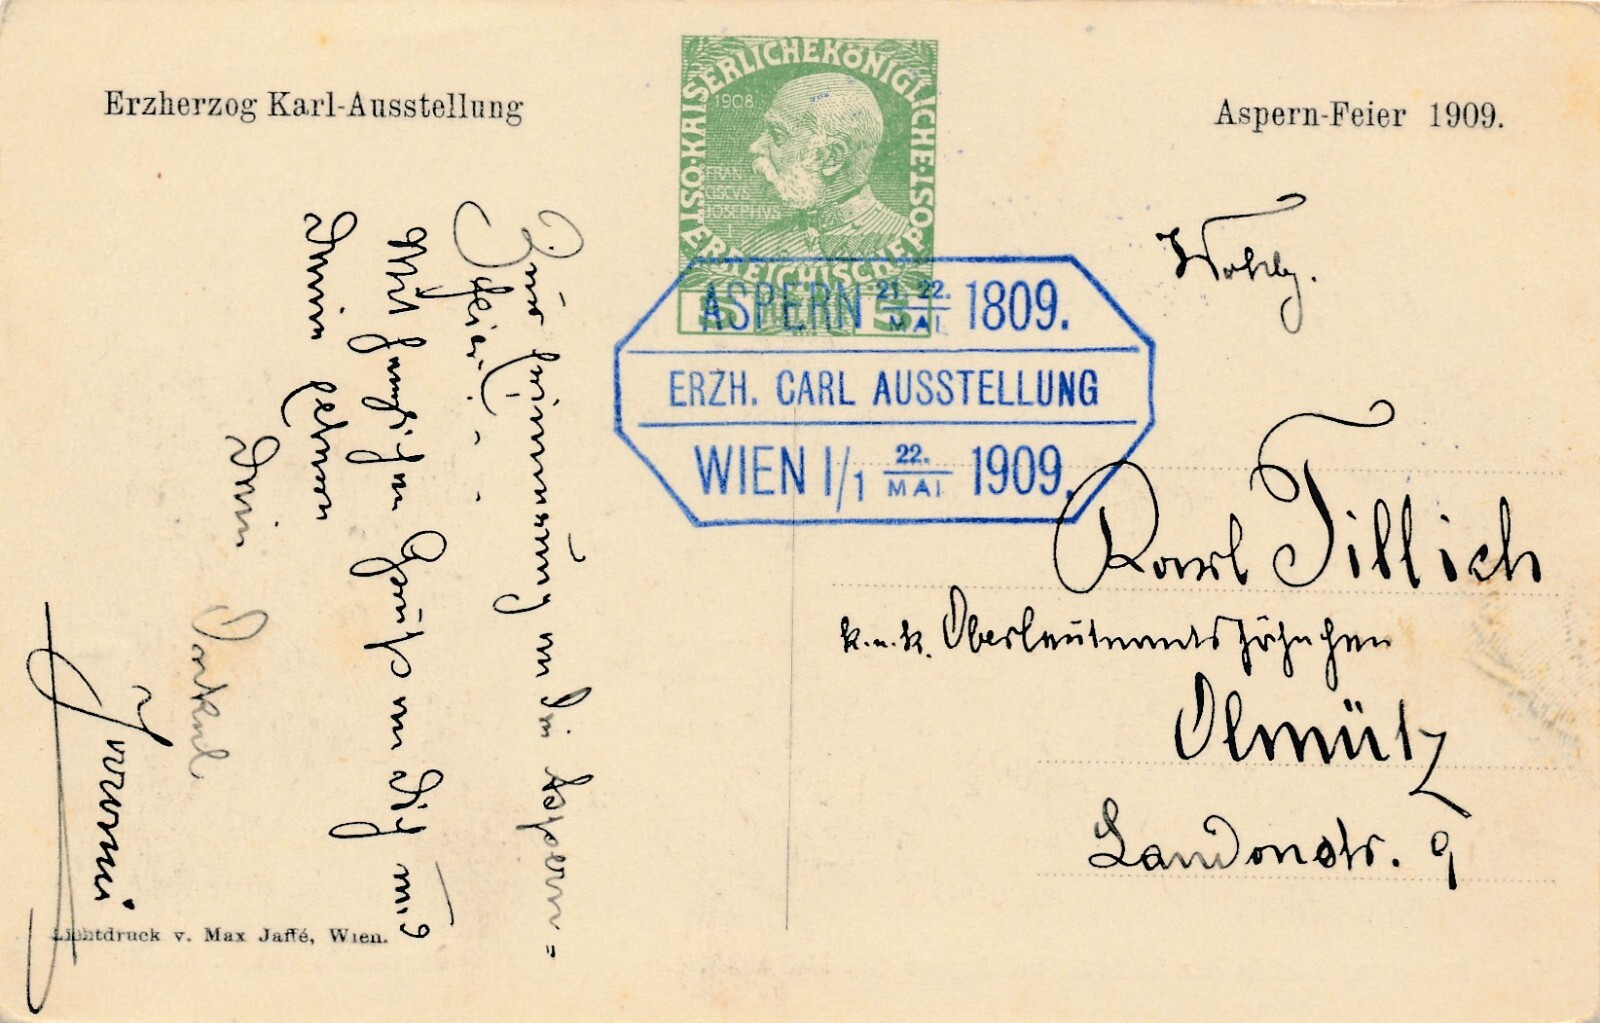 Erzherzog Karl-Ausstellung
Aspern-Feier 1909.
KAISERLICHE KÖNIGLICHE ÖSTERREICHISCHE POST
1908
FRAN
CISCVS
JOSEPHVS
I
5 5
ASPERN 21. 22. MAI 1809.
ERZH. CARL AUSSTELLUNG
WIEN I/1 22. MAI 1909.
Wohlg.
Karl Tillich
k. u. k. Oberleutnantssöhnchen
Olmütz
Laudonstr. 9
Zur Erinnerung an die Aspern=
Feier
Mit herzigen Grüßen an Dich und
Deine lieben
Dein Onkel
Lichtdruck v. Max Jaffé, Wien.